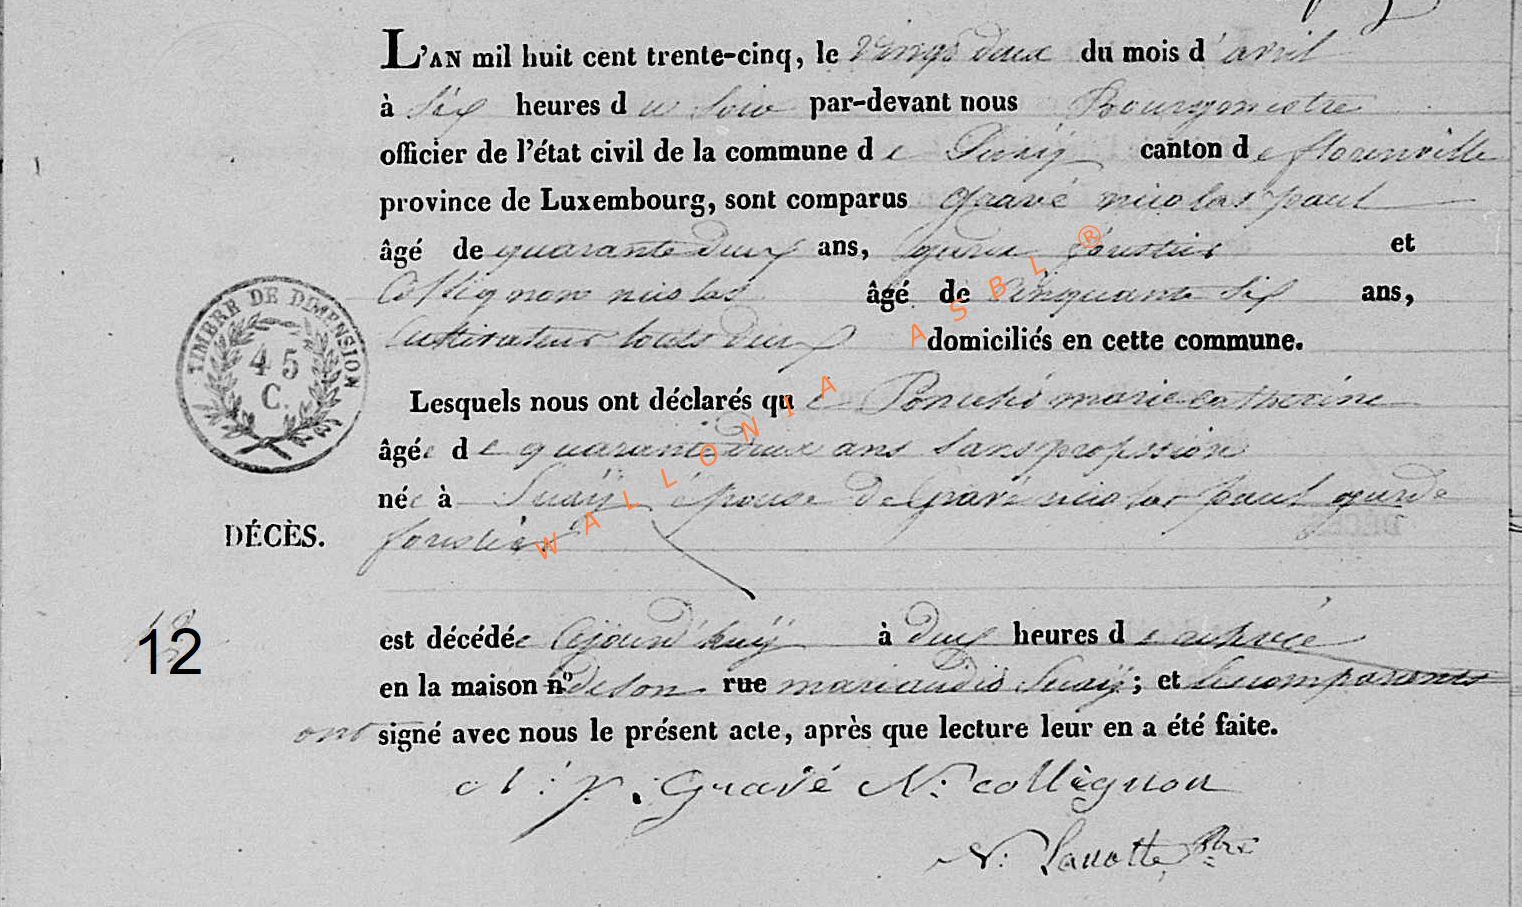 L'AN mil huit cent trente-cinq, le Vingt deux du mois d'avril
à Six heures du Soir par-devant nous Bourgmestre
officier de l'état civil de la commune de Suxÿ canton de florenville
province de Luxembourg, sont comparus Gravé nicolas paul
âgé de quarante deux ans, garde forestier et
Collignon nicolas âgé de Cinquante Six ans,
Cultivateur touts deux domiciliés en cette commune.
Lesquels nous ont déclarés que Poncelé marie catherine
âgée de quarante deux ans Sans profession
née à Suxÿ épouse de Gravé nicolas paul garde
forestier
DÉCÈS.
12
est décédée à deux heures de
en la maison n° de son rue mari audit Suxÿ; et les comparants
ont signé avec nous le présent acte, après que lecture leur en a été faite.
N. p. Gravé N. collignon
N. Bre
TIMBRE DE DIMENSION
45
C.
WALLONIA ASBL ®